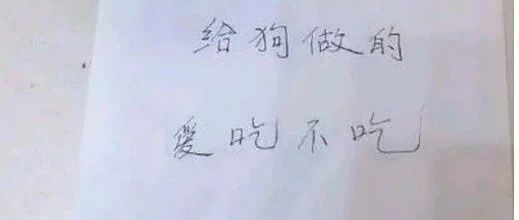 给狗做的
爱吃不吃